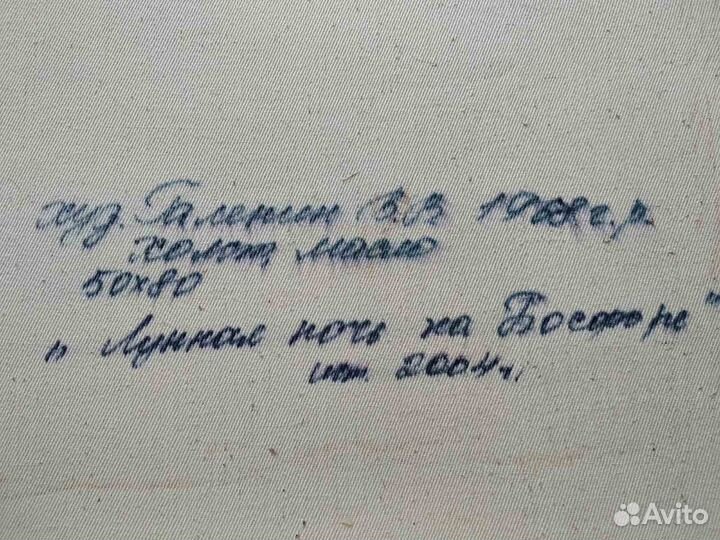 худ. Галенин В.В 1968 г.р.
холст, масло
50х80
„ Лунная ночь на Босфоре"
2004 г.
Avito